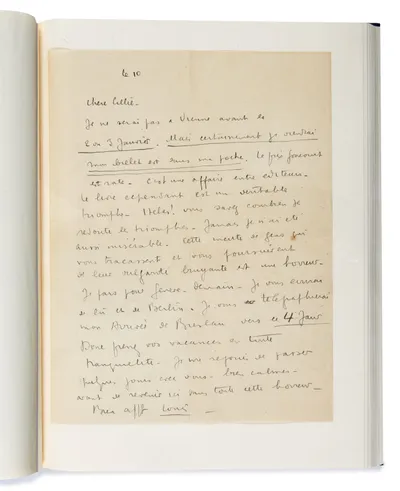 le 10
Chère Cillie -
Je ne serai pas à Vienne avant le
2 ou 3 Janvier. Mais certainement je viendrai
mon billet est dans ma poche. Le prix Goncourt
est raté. C'est une affaire entre éditeurs.
Le livre cependant est un véritable
triomphe. Hélas! vous savez combien je
redoute les triomphes. Jamais je n'ai été
aussi misérable. Cette meute de gens qui
vous tracassent et vous poursuivent
de leur vulgarité bruyante est une horreur.
Je pars pour Genève demain. Je vous écrirai
de là et de Berlin. Je vous télégraphierai
mon arrivée de Breslau vers le 4 Janv
Donc prenez vos vacances en toute
tranquillité. Je me réjouis de passer
quelques jours avec vous. bien calmes -
avant de revenir ici dans toute cette horreur -
Bien afft Louis -